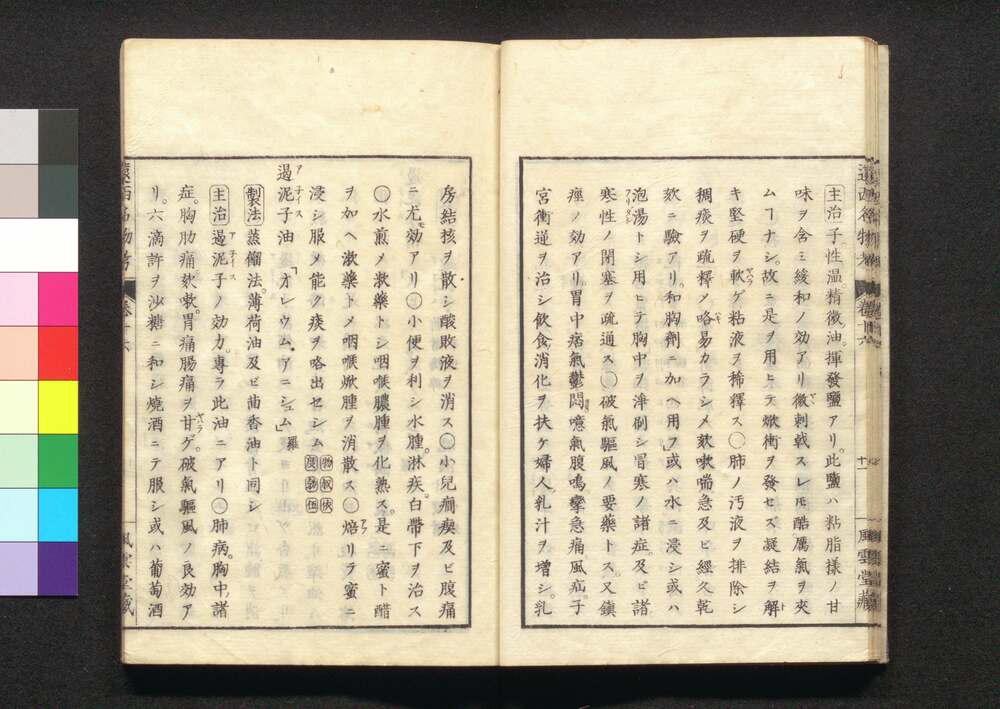 主治子性温精微油。揮發鹽アリ。此鹽ハ粘脂様ノ甘
味ヲ含ミ緩和ノ効アリ微刺戟スレ𪜈酷厲氣ヲ夾
ムーナシ。故ニ是ヲ用ヒテ焮衝ヲ發セズ凝結ヲ解
キ堅硬ヲ軟ゲ粘液ヲ稀釋ス〇肺ノ汚液ヲ排除シ
稠痰ヲ疏釋メ咯易カラシメ欬嗽喘急及ヒ經久乾
欬ニ驗アリ。和胸劑ニ加ヘ用フ或ハ水ニ浸シ或ハ
泡湯トシ用ヒテ胸中ヲ滌刷シ冒寒ノ諸症。及ヒ諸
寒性ノ閉塞ヲ疏通ス〇破氣驅風ノ要藥トス。又鎮
痙ノ効アリ。胃中痞氣鬱悶噫氣腹鳴攣急痛風疝。子
宮衝逆ヲ治シ飲食消化ヲ扶ケ婦人乳汁ヲ増シ。乳
遠西名物考 卷十六
十一
風雲堂藏
房結核ヲ散シ酸敗液ヲ消ス〇小兒癇瘈及ビ腹痛
ニ尤モ効アリ〇小便ヲ利シ水腫。淋疾白帶下ヲ治ス
〇水煎メ漱藥トシ咽喉膿腫ヲ化熟ス。是ニ蜜ト醋
ヲ加ヘ漱藥トメ咽喉焮腫ヲ消散ス〇焙リラ蜜ニ
浸シ服メ能ク痰ヲ咯出セシム
過泥子油 アナイス 「オレウム。アニシュム」羅
製法蒸餾法。薄荷油及ビ茴香油ト同シ
主治過泥子ノ効力。專ラ此油ニアリ〇肺病。胸中ノ諸
症。胸肋痛欬嗽。胃痛腸痛ヲ甘ゲ。破氣驅風ノ良効ア
リ。六滴許ヲ沙糖ニ和シ燒酒ニテ服シ或ハ葡萄酒
遠西名物考 卷十六
風雲堂藏